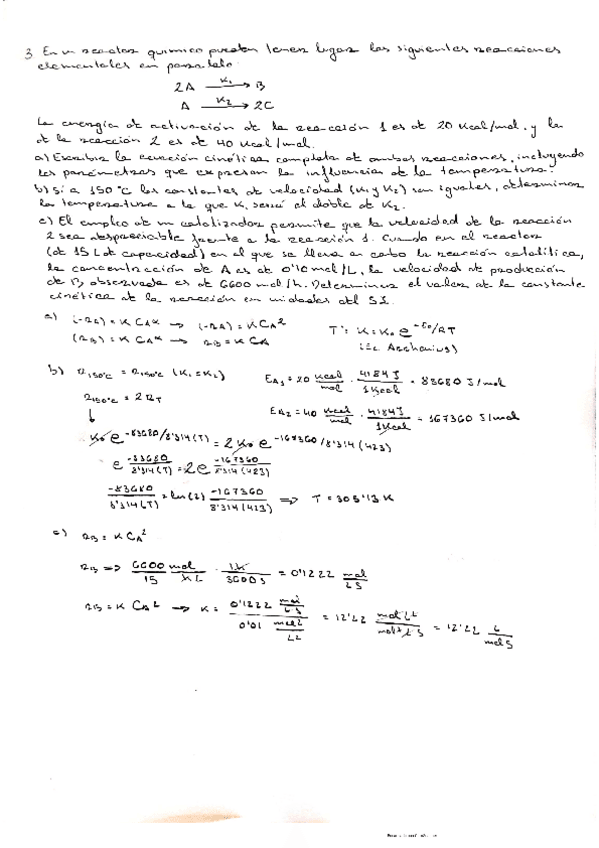 3 En un reactor químico pueden tener lugar las siguientes reacciones
elementales en paralelo:
2A —K₁→ B
A —K₂→ 2C
La energía de activación de la reacción 1 es de 20 Kcal/mol. y la
de la reacción 2 es de 40 Kcal/mol.
a) Escriba la ecuación cinética completa de ambas reacciones, incluyendo
los parámetros que expresan la influencia de la temperatura.
b) Si a 150°C las constantes de velocidad (K₁ y K₂) son iguales, determinar
la temperatura a la que K₁ será el doble de K₂.
c) El empleo de un catalizador permite que la velocidad de la reacción
2 sea despreciable frente a la reacción 1. Cuando en el reactor
(de 15 L de capacidad) en el que se lleva a cabo la reacción catalítica,
la concentración de A es de 0'10 mol/L, la velocidad de producción
de B observada es de 6600 mol/h. Determinar el valor de la constante
cinética de la reacción en unidades del S.I.
a) (-RA) = K CA^α → (-RA) = K CA²
T: K = K₀ e^(-Ea/RT)
(RB) = K CA^α → RB = K CA
(Ec Arrhenius)
b) R150°C = R150°C (K₁ = K₂)
EA₁ = 20 Kcal/mol · 4184 J/1 Kcal = 83680 J/mol
R150°C = 2 RT
EA₂ = 40 Kcal/mol · 4184 J/1 Kcal = 167360 J/mol
↓
K₀ e^(-83680/8'314(T)) = 2 K₀ e^(-167360/8'314(423))
e^(-83680/8'314(T)) = 2e^(-167360/8'314(423))
-83680/8'314(T) = ln(2) -167360/8'314(423) ⇒ T = 305'13 K
c) RB = K CA²
RB ⇒ 6600 mol/15 h L · 1h/3600 s = 0'1222 mol/L S
RB = K CA² → K = 0'1222 mol/L S / 0'01 mol²/L² = 12'22 mol L²/mol² L S = 12'22 L/mol S